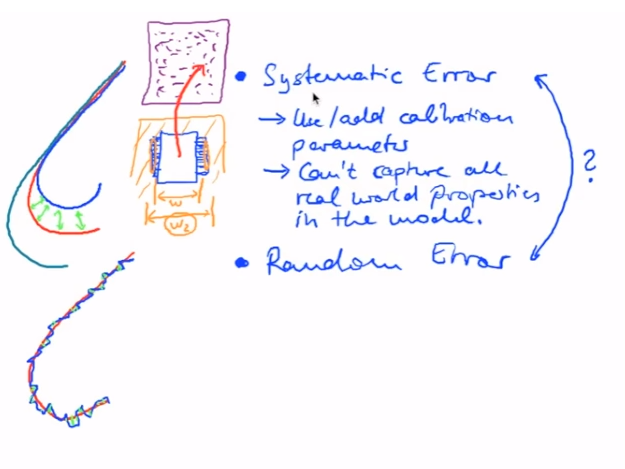 • Systematic Error
→ Use/add calibration
parameters
→ Can't capture all
real world properties
in the model.
?
w
w2
• Random Error